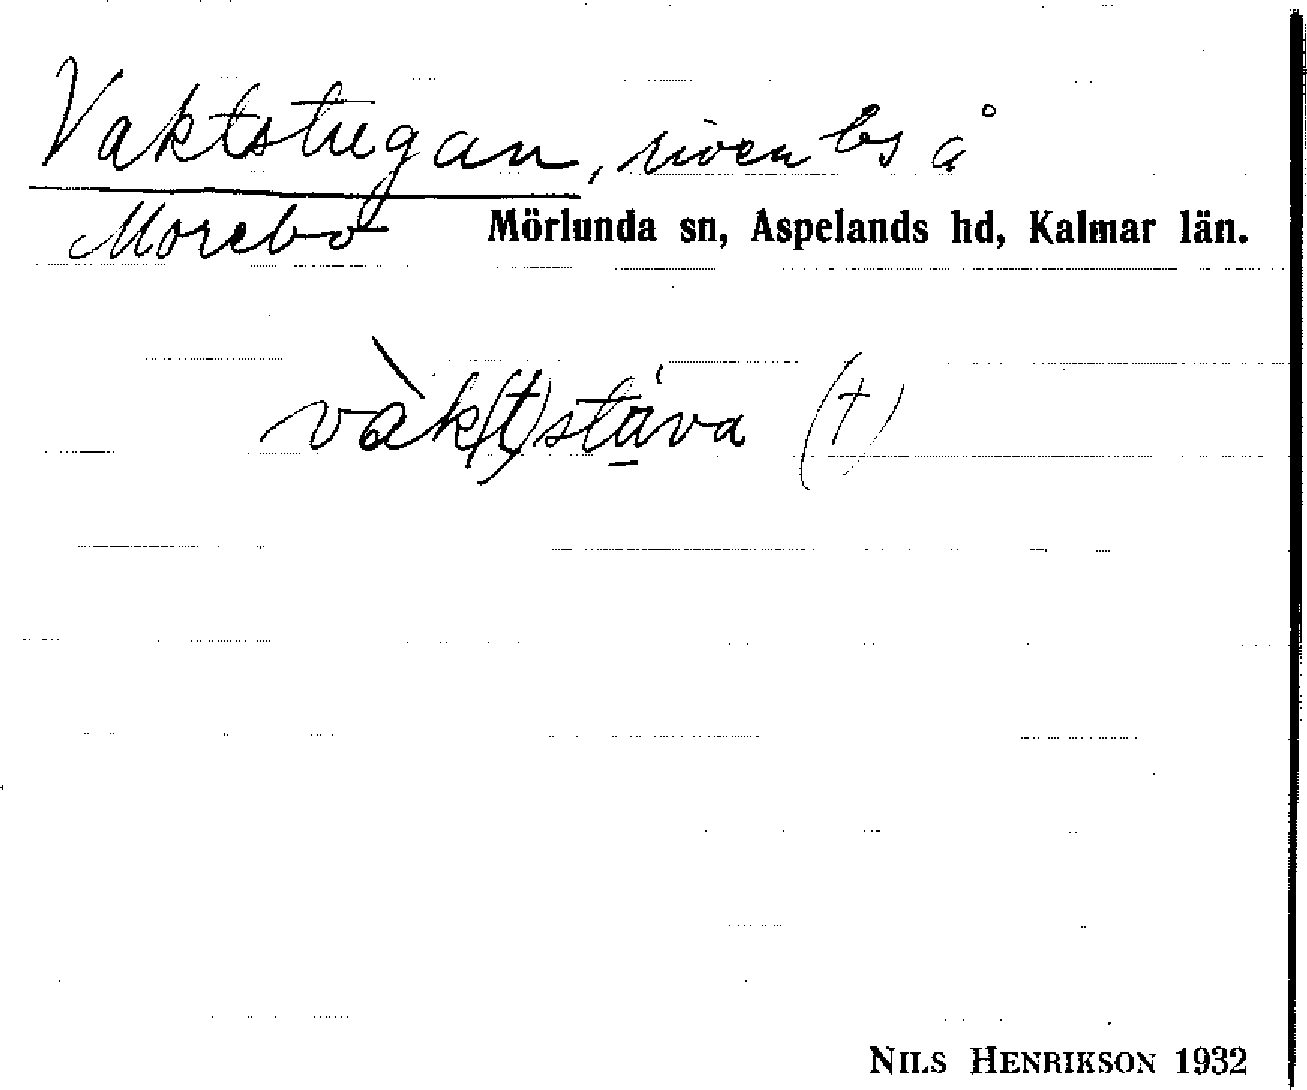 Vaktstugan, riven bs å
Morebo Mörlunda sn, Aspelands hd, Kalmar län.
vàk(t)stáva (†)
NILS HENRIKSON 1932